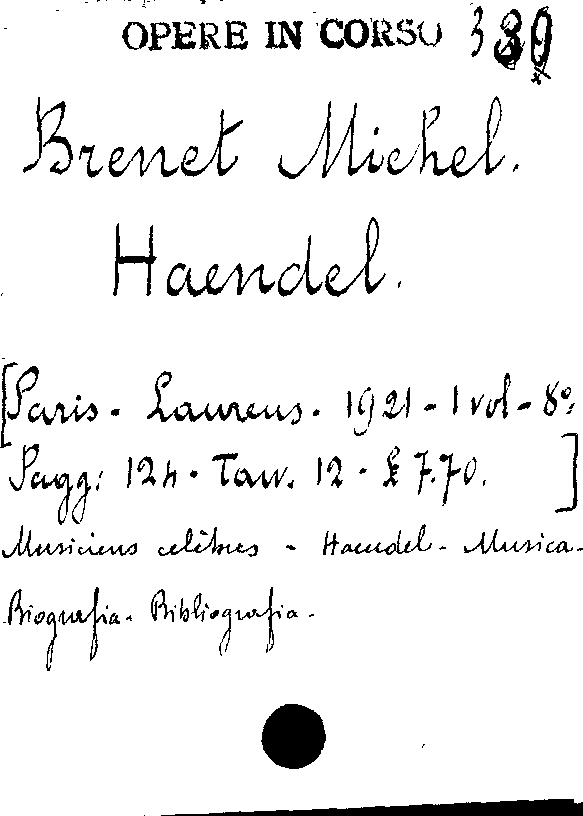 OPERE IN CORSO 380
Brenet Michel.
Haendel.
[Paris - Laurens - 1921 - 1 vol - 8°,
Pagg: 124 - Tav. 12 - £ 7.70. ]
Musiciens célèbres - Haendel - Musica -
Biografia - Bibliografia -